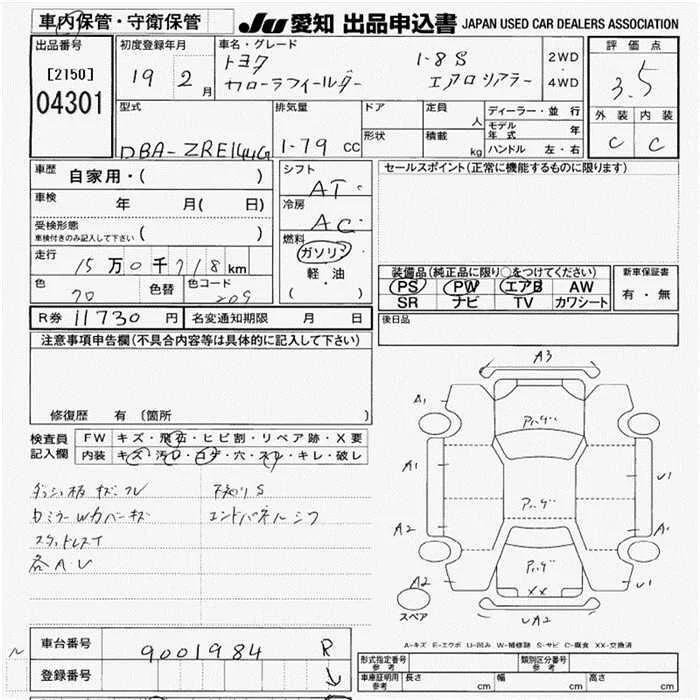 車内保管・守衛保管
JU 愛知 出品申込書 JAPAN USED CAR DEALERS ASSOCIATION
出品番号
[2150]
04301
初度登録年月
19 2月
車名・グレード
トヨタ 1-8S
カローラフィールダー エアロツアラー
2WD
4WD
評価点
3.5
外装 内装
C C
型式
DBA-ZRE144G
排気量
1-79 cc
ドア
形状
定員 人
積載 kg
ディーラー・並行
モデル年式 年
ハンドル 左・右
車歴 自家用・( )
車検 年 月( 日)
受検形態
車検付きのみ記入して下さい ( )
走行 15万0千718km
色 70 色替 色コード 209
シフト
AT
冷房
AC
燃料
ガソリン
軽油
( )
セールスポイント(正常に機能するものに限ります)
装備品(純正品に限り○をつけてください)
PS PW エアB AW
SR ナビ TV カワシート
新車保証書
有・無
後日品
R券 11730円 名変通知期限 月 日
注意事項申告欄(不具合内容等は具体的に記入して下さい)
修復歴 有 (箇所 )
検査員記入欄
FW キズ・飛石・ヒビ割・リペア跡・X要
内装 キズ・汚レ・コゲ・穴・スレ・キレ・破レ
下廻りS
カミラーWカバーキズ エンドパネルシフ
スタッドレスT
各A.U
A3
A1
A1
A2
A2
U1
A1
U1
UA2
XX
スペア
A-キズ E-エクボ U-凹み W-補修跡 S-サビ C-腐食 XX-交換済
車台番号 9001984 R
登録番号
型式指定番号 参考
類別区分番号 参考
車庫証明用 参考 長さ cm 幅 cm 高さ cm